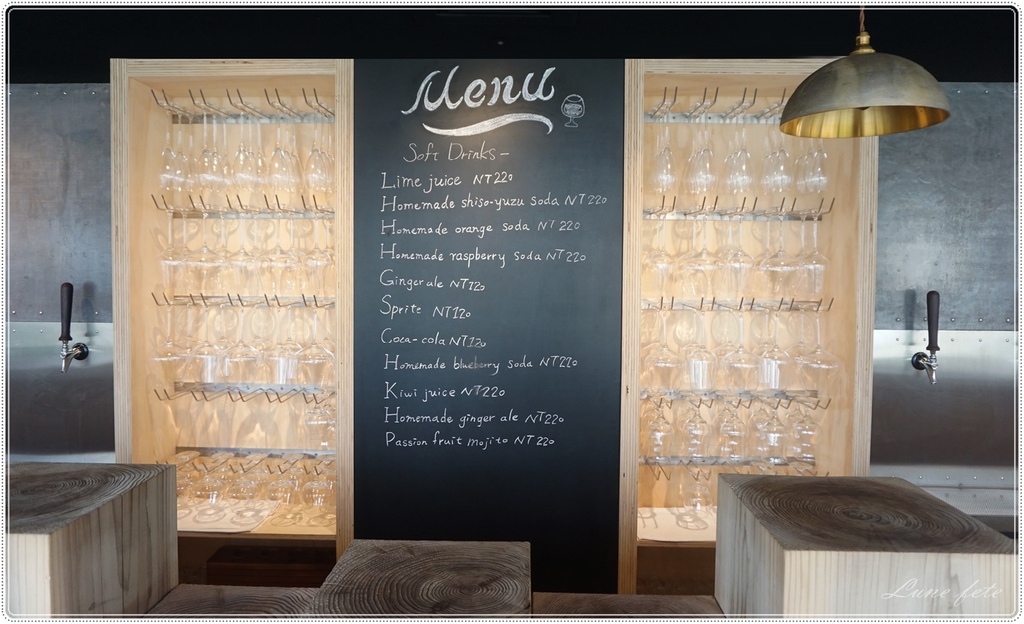 Menu
Soft Drinks-
Lime juice NT220
Homemade shiso-yuzu soda NT220
Homemade orange soda NT220
Homemade raspberry soda NT220
Ginger ale NT120
Sprite NT120
Coca-cola NT120
Homemade blueberry soda NT220
Kiwi juice NT220
Homemade ginger ale NT220
Passion fruit mojito NT220
Lune fete